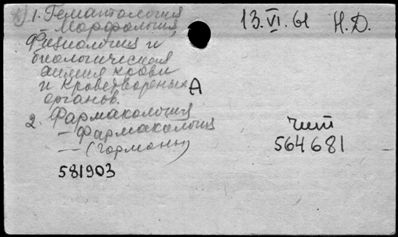 1. Гематология
Морфология
Физиология и
биологическая
химия крови
и кроветворных
органов.
А
2. Фармакология
– Фармакология
– (Гормоны)
581903
13.VI.61 Н.Д.
чит
564681